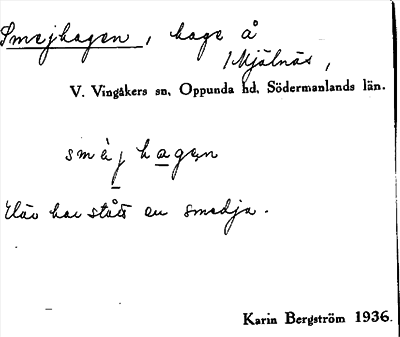 Smejhagen, hage å
Mjälnäs,
V. Vingåkers sn, Oppunda hd, Södermanlands län.
smèj hagen
Här har stått en smedja.
Karin Bergström 1936.